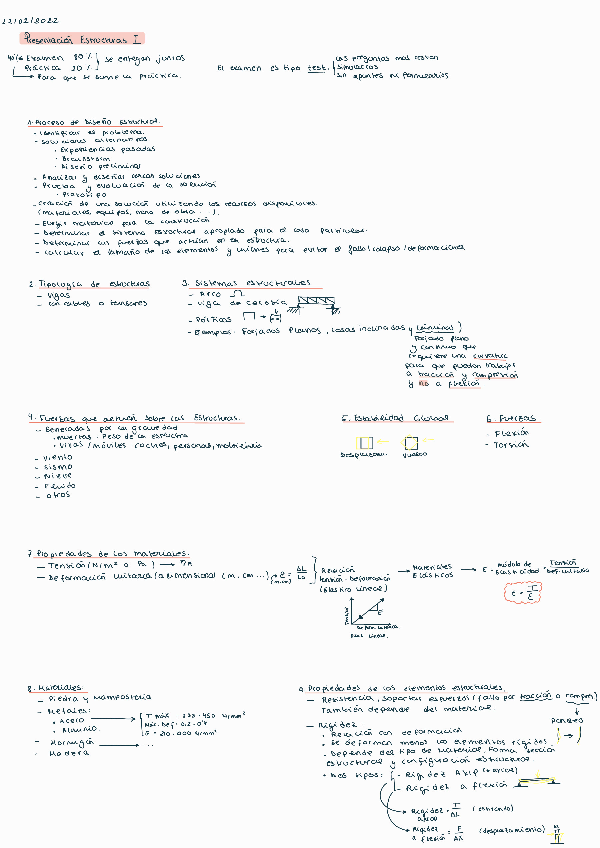 22/02/2022
Presentación Estructuras I
40% Examen 80% se entregan juntos
Práctica 20%
Para que se sume la práctica.
El examen es tipo test.
Las preguntas mas restan
sin apuntes ni formularios
1. Proceso de Diseño Estructural.
- Identificar el problema.
- Soluciones alternativas
• Experiencias pasadas
• Brainstorm
• Diseño preliminar
- Analizar y diseñar varias soluciones
- Prueba y evaluación de la solución
• Prototipo
- Creación de una solución utilizando los recursos disponibles.
(materiales, equipos, mano de obra...).
- Elegir materiales para la construcción
- Determinar el sistema estructural apropiado para el caso particular.
- Determinar las fuerzas que actúan en la estructura.
- Calcular el tamaño de los elementos y uniones para evitar el fallo/colapso/deformaciones
2. Tipología de estructuras
- Vigas
- con cables o tensores
3. Sistemas estructurales
- Arco
- Viga de celosía
- Pórticos
- Ejemplos: Forjados planos, losas inclinadas y láminas)
Forjado plano
y continuo que
requiere una curvatura
para que puedan trabajar
a tracción y compresión
y no a flexión
4. Fuerzas que actúan sobre las Estructuras.
- Generadas por la gravedad
• muertas: Peso de la estructura
• Vivas/móviles: coches, personas, mobiliario
- Viento
- Sismo
- Nieve
- Fluido
- Otros
5. Estabilidad Global
Desplazam. Vuelco
6. Fuerzas
- Flexión
- Torsión
7. Propiedades de los materiales.
- Tensión (N/m² o Pa)
- Deformación unitaria (adimensional (m, cm...) ε = ΔL/L0
Relación
tensión-deformación
(Elástico Lineal)
Materiales
Elásticos
E = módulo de elasticidad = Tensión
8. Materiales.
- Piedra y Mampostería
- Metales:
• Acero
• Aluminio
- Hormigón
- Madera
9. Propiedades de los elementos estructurales.
- Resistencia, soportar esfuerzos (fallo por tracción o compres)
También depende del material.
Pandeo
- Rigidez
• Relación con deformación
• Se deforman menos los elementos rígidos.
• Depende del tipo de material, forma, sección
estructural y configuración estructural
• Dos tipos: - Rigidez Axil
- Rigidez a flexión
Rigidez axial = T/ΔL (estirando)
Rigidez a flexión = F/ΔL (desplazamiento)